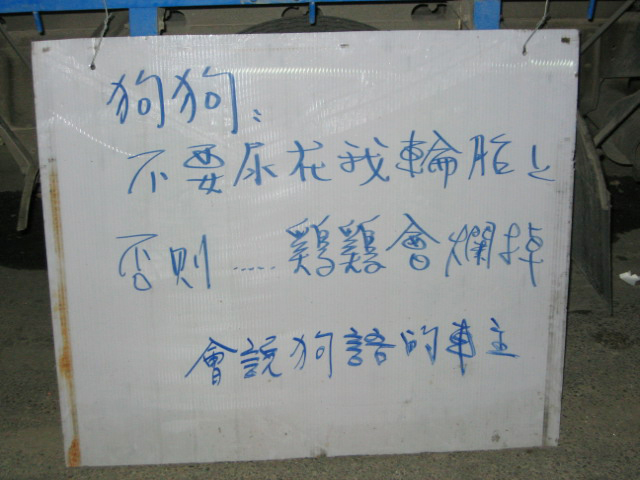 狗狗：
不要尿在我輪胎上
否則……鷄鷄會爛掉
會說狗語的車主